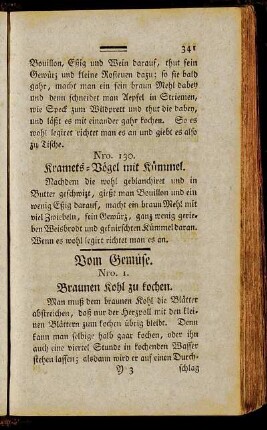 341
Bouillon, Eßig und Wein darauf, thut fein
Gewürz und kleine Rosienen dazu; so sie bald
gahr, macht man ein fein braun Mehl dabey
und denn schneidet man Aepfel in Striemen,
wie Speck zum Wildprett und thut die dabey,
und läßt es mit einander gahr kochen. So es
wohl legirt richtet man es an und giebt es also
zu Tische.
Nro. 130.
Kramets-Vögel mit Kümmel.
Nachdem die wohl geblanchiret und in
Butter geschwizt, gießt man Bouillon und ein
wenig Eßig darauf, macht ein braun Mehl mit
viel Zwiebeln, fein Gewürz, ganz wenig gerie-
ben Weisbrodt und geknirschten Kümmel daran.
Wenn es wohl legirt richtet man es an.
Vom Gemüse.
Nro. 1.
Braunen Kohl zu kochen.
Man muß dem braunen Kohl die Blätter
abstreichen, daß nur der Herzpoll mit den klei-
nen Blättern zum kochen übrig bleibt. Denn
kann man selbige halb gaar kochen, oder ihn
auch eine viertel Stunde in kochenden Wasser
stehen lassen; alsdann wird er auf einen Durch-
Y 3 schlag